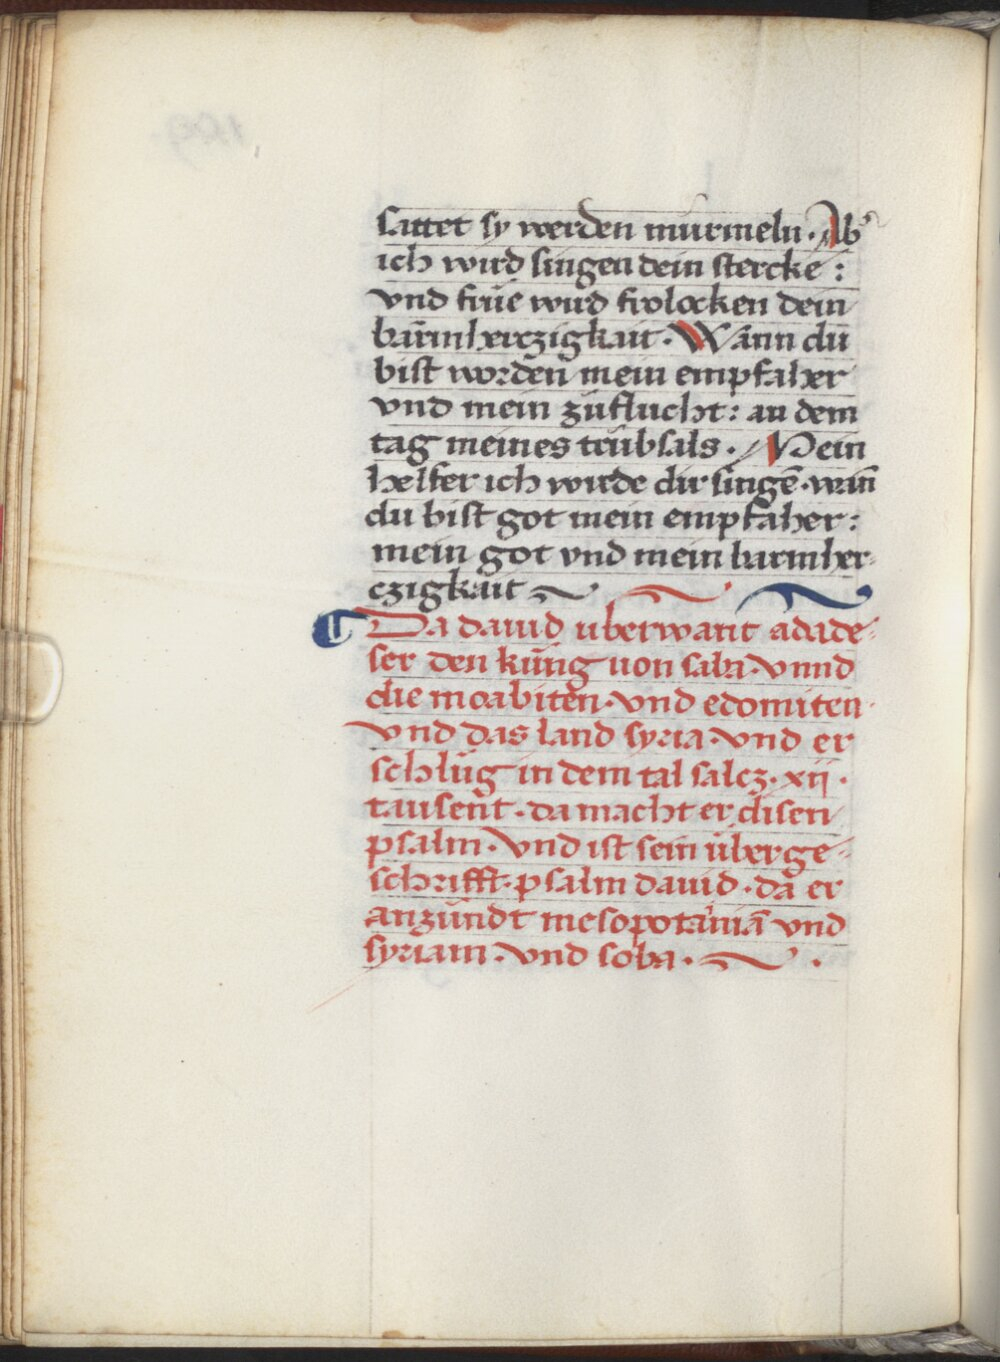 sattet sy werden murmeln. Ab᷑
ich wird singen dein stercke :
vnd frue wird frolocken dein
barmherczigkait. Wann du
bist worden mein empfaher
vnd mein zuflucht: an dem
tag meines trubsals. Mein
helfer ich wirde dir singē. wān
du bist got mein empfaher:
mein got vnd mein barmher-
czigkait
Da dauid uberwant adade-
ser den kúng uon saba. vnnd
die moabiten. vnd edomiten.
vnd das land syria. vnd er
schlůg in dem tal salcz. xij.
tausent. da macht er disen
psalm. vnd ist sein überge-
schrifft. psalm dauid. da er
anzündt mesopotamiā vnd
syriam. vnd soba.